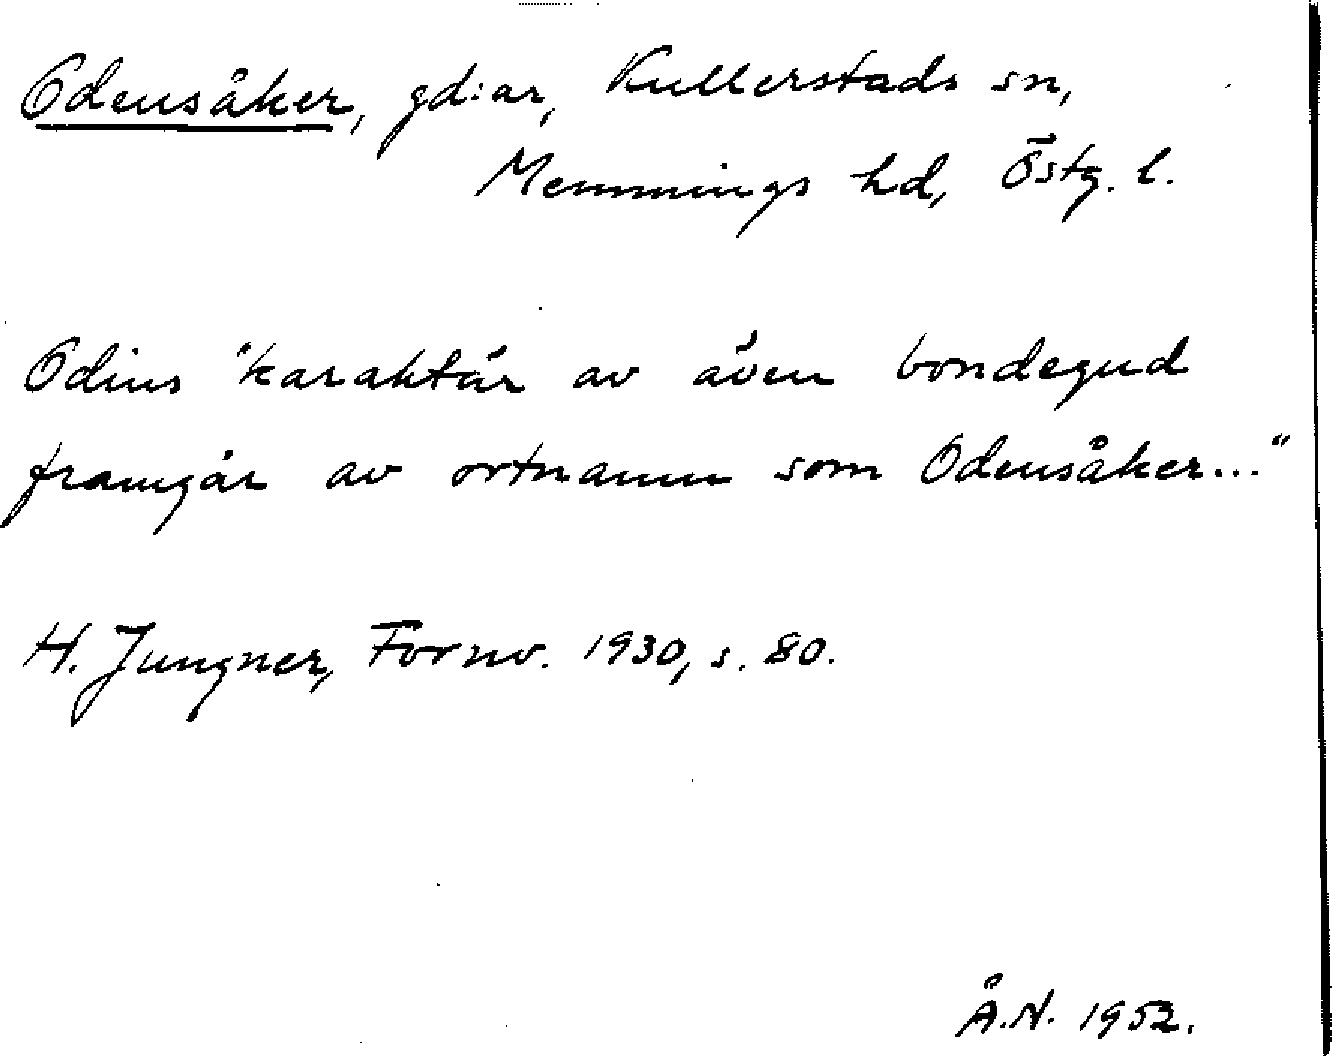 Odensåker, gd:ar, Kullerstads sn,
Memmings hd, Östg. l.
Odins "karaktär av även bondegud
framgår av ortnamn som Odensåker..."
H. Jungner, Fornv. 1930, s. 80.
Å.N. 1952.